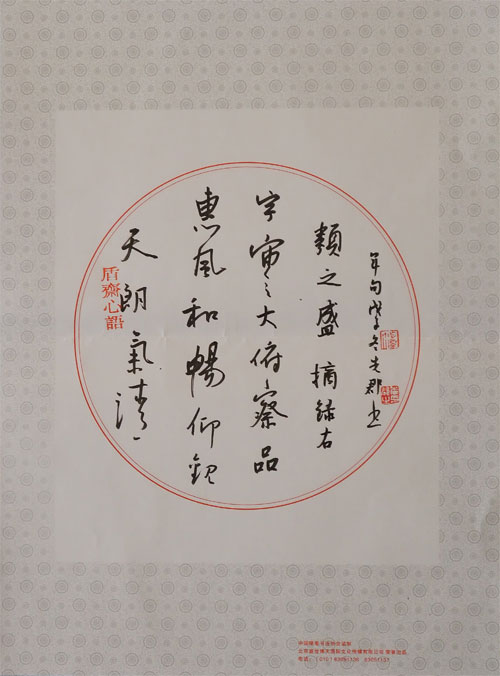 天朗氣清
惠風和暢仰觀
宇宙之大俯察品
類之盛摘録右
軍句
盾齋心語